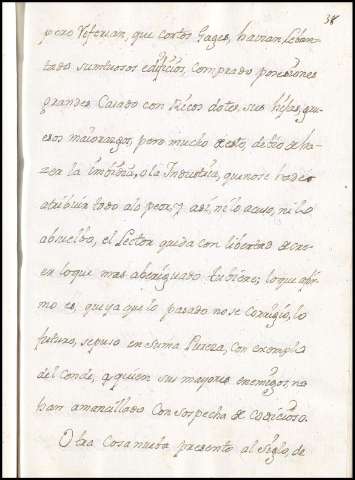 38
pero referian, que cortos Gages, havian Leban-
tado sumtuosos edificios, comprado posesiones
grandes Casado con Ricos dotes, sus hijas, gru-
esos maiorazgos, pero mucho de esto, debio de ha-
zer la imbidia, o la Industria, que no se ha de
atribuir todo alo peor, y asi, ni lo acuso, ni lo
absuelbo, el Lector queda con libertad de cre-
er lo que mas aberiguado tubiere; lo que afir-
mo es, que ya que lo pasado no se corrigió, lo
futuro, se puso en suma Pureza, con exemplo
del Conde, a quien sus mayores enemigos, no
han amancillado Con sospecha de codicioso.
Otra Cosa nueba presento al Siglo, de